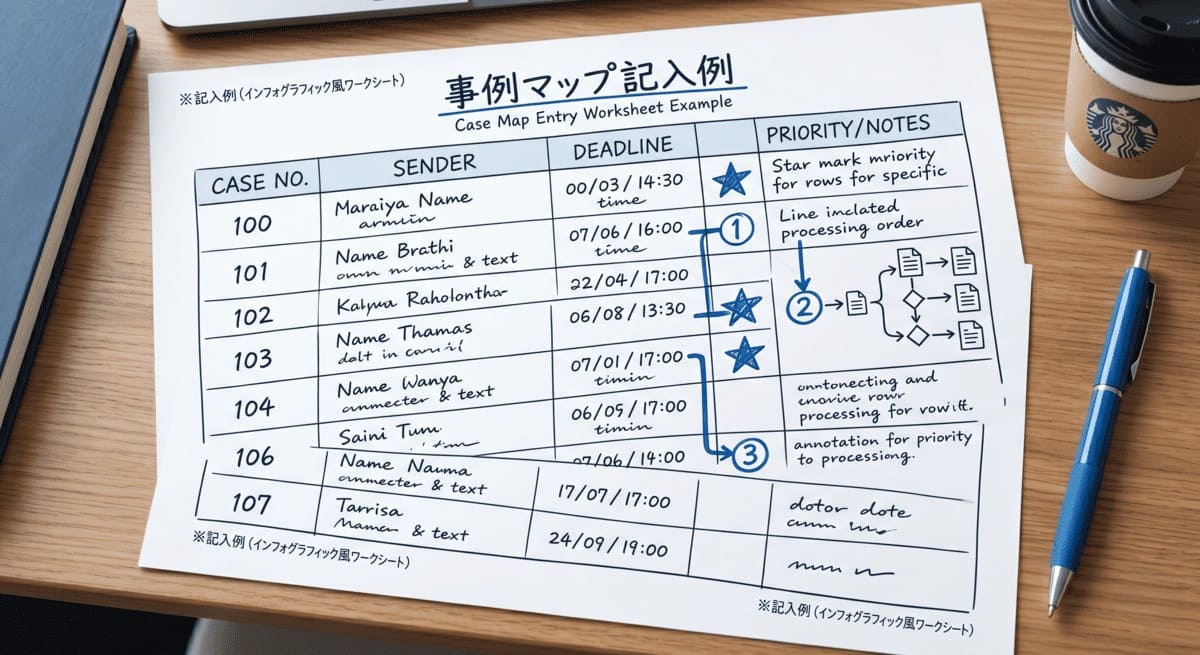 ※記入例(インフォグラフィック風ワークシート)
事例マップ記入例
Case Map Entry Worksheet Example
CASE NO. SENDER DEADLINE PRIORITY/NOTES
100 Maraiya Name 00/03/14:30 Star mark mriority
time for rows for specific
101 Name Brathi 07/06/16:00 1 Line imclated
& text time processing order
102 22/04/17:00
103 Name Thamas 06/08/13:30 2
in
104 Name Wanya 07/01/17:00 and
& text timin processing for
Saini 06/05/17:00
timin
106 Name Nauma 07/06/14:00 3 annotation for priority
& text to processiong.
107 Tarrisa 17/07/17:00 dotor dote
& text 24/09/19:00
※記入例(インフォグラフィック風ワークシート)
※記入例(インフォグラフィック風ワークシート)